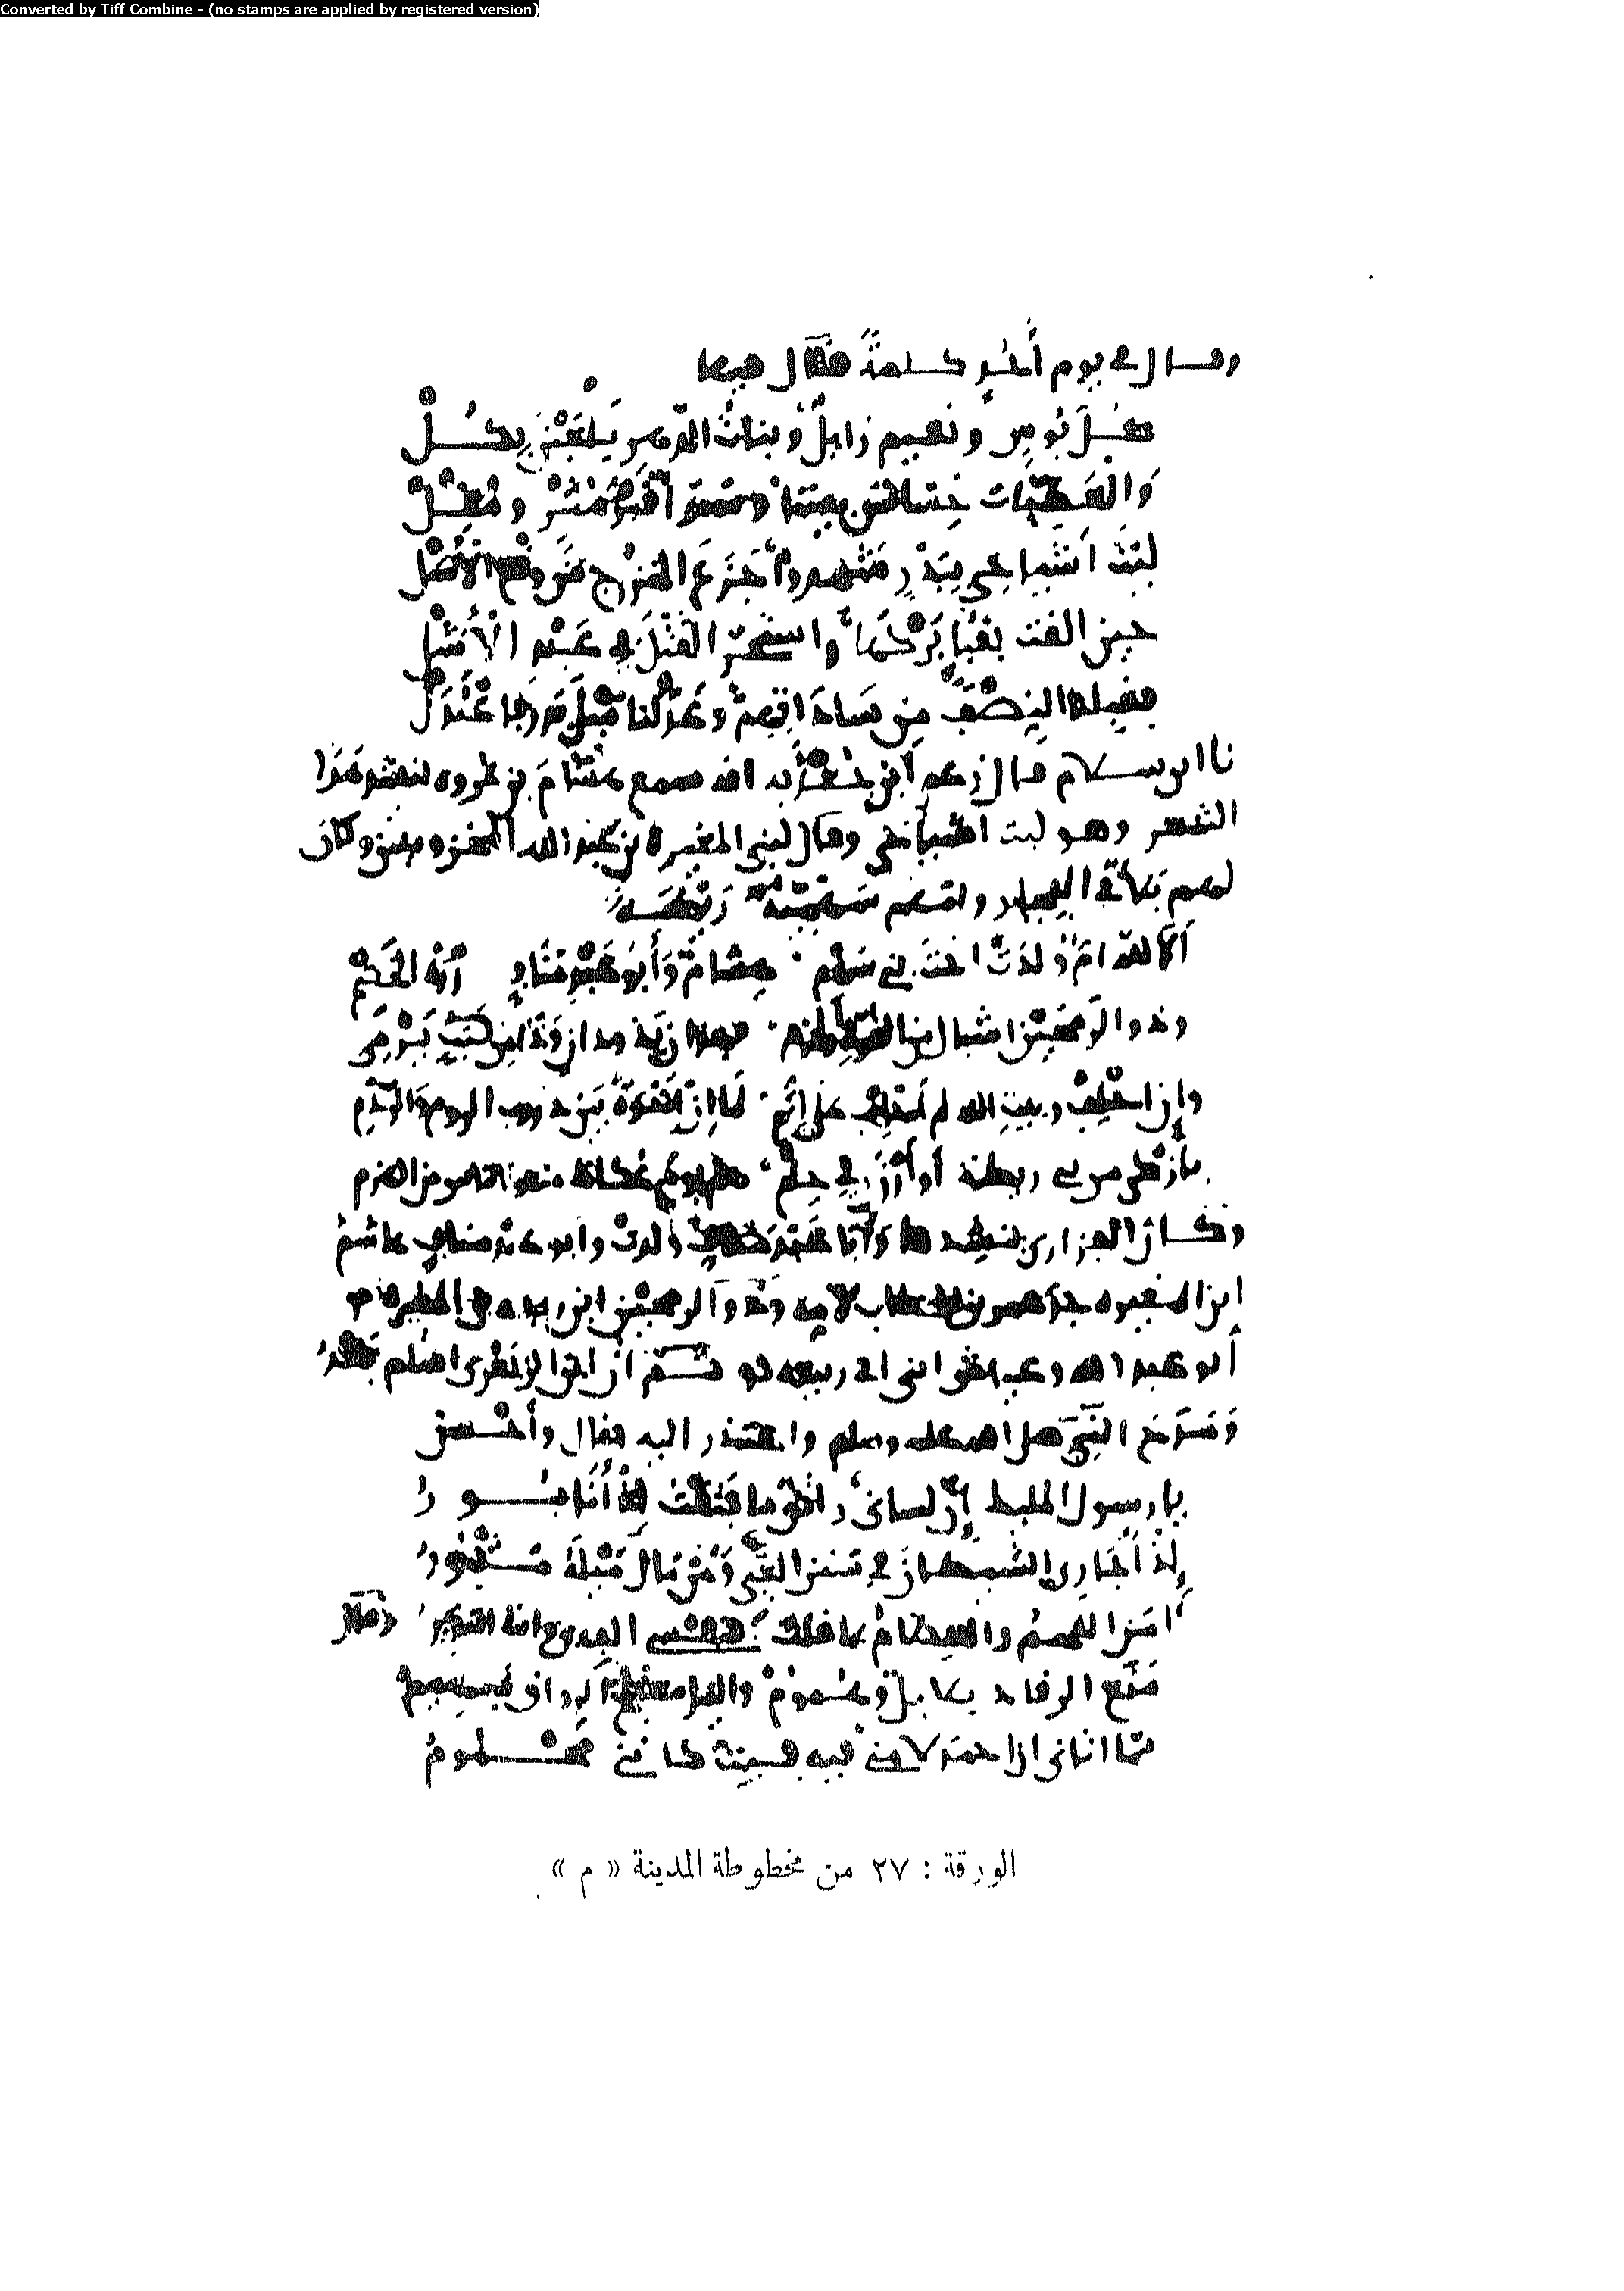 Converted by Tiff Combine - (no stamps are applied by registered version)
وقال في يوم أُحُدٍ كلمةً فقال فيها
كلُّ بُوسٍ ونعيم زايلٌ وبناتُ الدّهر يَلعَبْنَ بكُلْ
والعَطِيَّات خساس بيننا وسواء قبرُ مُثْرٍ ومُقِلّ
ليتَ اشياخي بِبَدْرٍ شهدوا جَزَعَ الخزرج من وقع الأَسَلْ
حين القت بقُبَاءٍ بَرْكَها واستحرّ القَتْلُ في عَبْدِ الأَشَلْ
فقبلنا النِصْفَ مِن سادَاتِهم وعدلنا مَيْلَ بدر فاعْتَدَلْ
نا ابن سلام قال زعم ابن جُعْدُبة انه سمع هشامَ بن عروه ينشد هذا
الشعر وهو ليت اشياخي وقال لبني المغيرة بن عبد الله المخزوميين وكان
لهم
أَلا لله قومٌ ولدَتْ اخت بني سَهْمٍ هشامٌ وأَبو عبدِ مَنَافٍ مِدْرَهُ الخَصْمِ
وذو الرمحين اشبال من القوة والحزم فهذان يذودان وذا من كَثَبٍ يَرْمي
وإن احلف وبيتِ الله لم احلف على إثمِ لما إن إخوة بين دروب الروم والرَّدْمِ
بأزكى من بني ريطة أو أَوْزَنَ في حِلْمِ هم يوم عكاظ منعوا الناس من الهزم
ابن المغيره وذو الرمحين ابن ربيعه بن المغيره
أبو عبد الله وعياش ابني ابي ربيعه ثم أن ابن الزبعرى اسلم
ومَدَحَ النبيّ صلى الله عليه وسلم واعتذر اليه فقال وأَحْسن
يا رسول المليك إنّ لساني راتقٌ ما فتقتُ إذ أَنا بُورُ
إذ أُجاري الشيطان في سَنن الغَيِّ ومن مال مَيْلَهُ مَثْبُورُ
آمَنَ اللحمُ والعِظامُ بما قلت فنفسي الفدى وانت النذير وقال
مَنَع الرقاد بلابلٌ وهمومُ والليل معتلج الرواق بهيم
ممّا اتاني ان احمدَ لامني فيه فبِتّ كانني محْمومُ
الورقة : ٢٧ من مخطوطة المدينة « م »